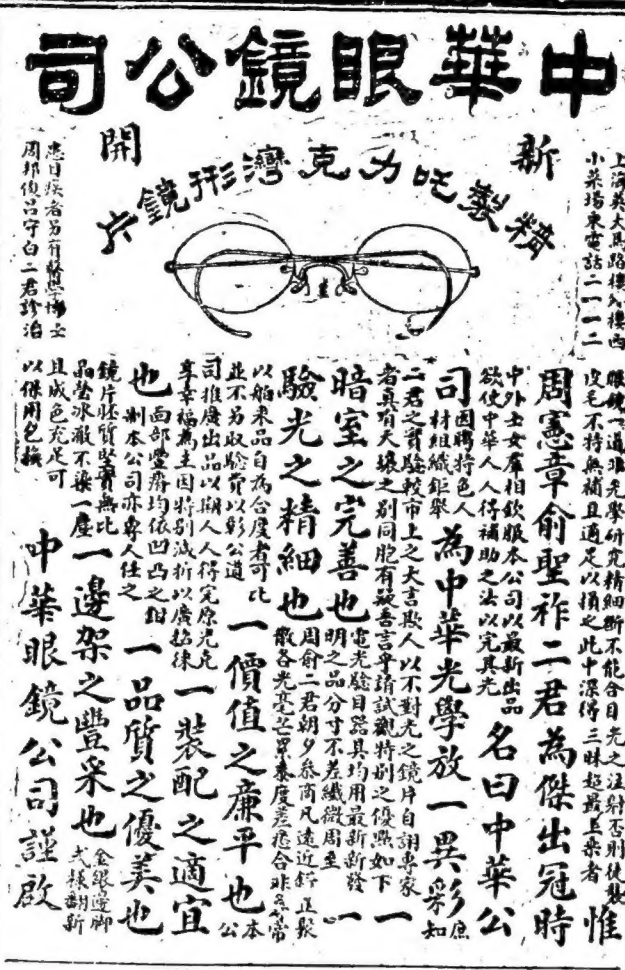 中華眼鏡公司
新開
精製吃力克灣形鏡片
上海英大馬路樓外樓西
小菜場東電話二一一二
患目疾者另有醫學博士
周邦俊呂守白二君診治
眼鏡一道非光學研究精細斷不能合目光之注射否則徒襲
皮毛不特無補且適足以損之此中深得三昧超最上乘者 惟
周憲章俞聖祚二君為傑出冠時
中外士女羣相欽服本公司以最新出品
欲使中華人人得補助之法以完其光
名曰中華公
司
因聘特色人
材組織鉅舉
為中華光學放一異彩
庶
知
二君之實驗較市上之大言欺人以不對光之鏡片自詡專家
者真有天壤之別同胞有疑吾言乎請試觀特別之優點如下 一
暗室之完善也
電光驗目器具均用最新新發
明之品分寸不差纖微周至
一
驗光之精細也
周俞二君朝夕參商凡遠近斜正聚
散各光毫芒累黍度差悉合非尋常
以舶來品自為合度者可比
並不另取驗費以彰公道
一價值之廉平也
本
公
司推廣出品以期人人得完原光克
享幸福為主因特別減折以廣招徠
一裝配之適宜
也
面部豐瘠均依凹凸之
制本公司亦專人任之
一品質之優美也
鏡片胚質堅實無比
晶瑩冰澈不染一塵
一邊架之豐采也
金銀邊脚
式樣翻新
且成色充足可
以保用包換
中華眼鏡公司謹啟